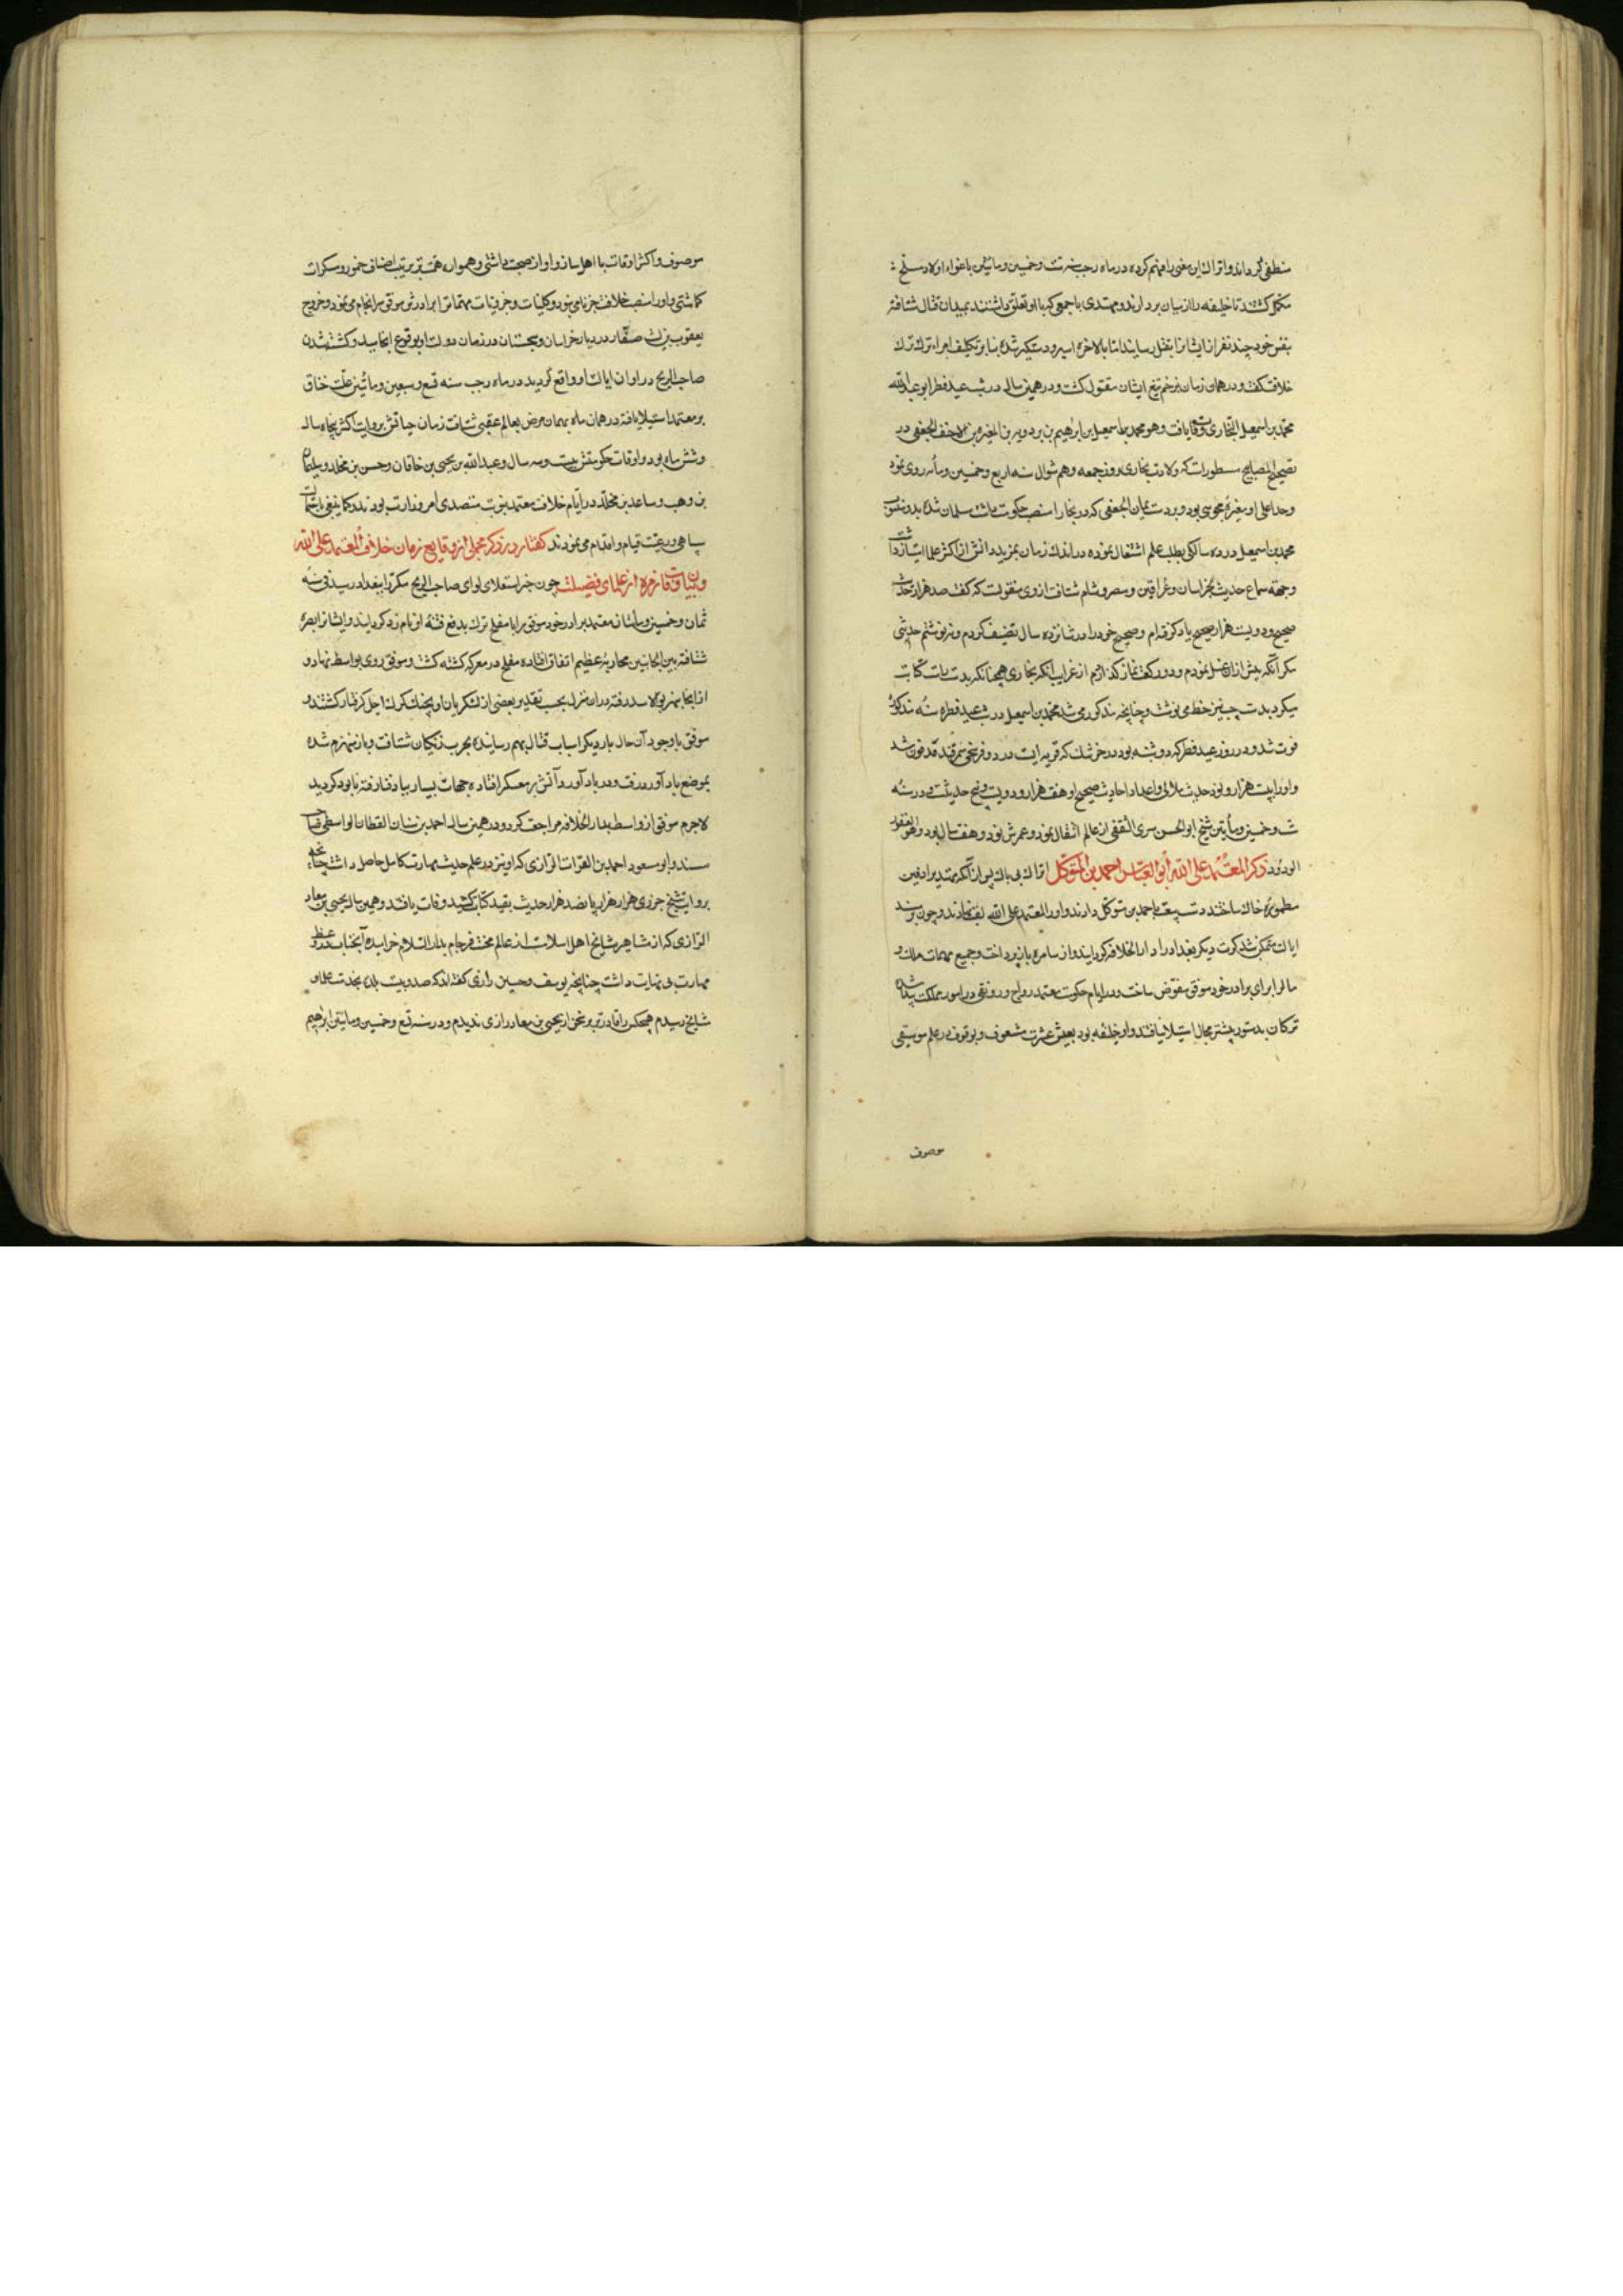 منطفی گرداند و اتراک این معنی را فهم کرده در ماه رجب سنه ست و خمسین و مائتین باغواء اولاد
مکمل گشتند تا خلیفه را از میان بردارند و مهتدی با جمعی که با او تعلق داشتند بمیدان قتال شتافته
بنفس خود چند نفر از ایشان را بقتل رسانید اما بالاخره اسیر و دستگیر شده بنا بر تکلیف امراء ترک ترک
خلافت گفت و در همان زمان بزخم تیغ ایشان مقتول گشت و در همین سال در شب عید فطر ابو عبدالله
محمد بن اسمعیل البخاری وفات یافت و هو محمد بن اسمعیل بن ابرهیم بن بردویه بن المغیره بن الاحنف الجعفی در
تصحیح المصابیح مسطورست که ولادت بخاری روز جمعه دهم شوال سنه اربع و خمسین و مأئه روی نمود
وجد اعلی او مغیره مجوسی بود و بر دست یمان الجعفی که در بخارا منصب حکومت داشت مسلمان شده بود و نفس
محمد بن اسمعیل در ده سالگی بطلب علم اشتغال نموده در اندک زمان بمزید دانش از اکثر علما امتیاز
و جهة سماع حدیث بخراسان و عراقین و مصر و شام شتافت از وی منقولست که گفت صد هزار حدیث
صحیح و دویست هزار غیر صحیح یاد گرفته‌ام و صحیح خود را در شانزده سال تصنیف کردم و ننوشتم حدیثی
مگر آنکه پیش از آن غسل نمودم و دو رکعت نماز گذاردم از غرایب آنکه بخاری همچنانکه بدست راست کتابت
میکرد بدست چپ نیز خط می‌نوشت و چنانچه مذکور می‌شد محمد بن اسمعیل در شب عید فطر سنه مذکوره
فوت شد و در روز عید فطر که دوشنبه بود در خرتنگ که قریه ایست در دو فرسخی سمرقند مدفون شد
و او را بیست هزار و نود حدیث ثلاثی و اعداد احادیث صحیح او هفت هزار و دویست و پنج حدیثست و در سنه
ست و خمسین و مأیتین شیخ ابو الحسن سری الثقفی از عالم انتقال نمود و عمرش نود و هفت سال بود و هو الغفور
الودود ذکر المعتمد علی الله ابو العباس احمد بن المتوکل اتراک بی باک پس از آنکه مهتدی را دفین
مطموره خاک ساختند دست بیعت باحمد بن متوکل دادند و او را المعتمد علی الله لقب نهادند و چون بر مسند
ایالت متمکن شد کرت دیگر بغداد را دار الخلافه گردانید و از سامره باز پرداخت و جمیع مهمات ملک و
مال را برای برادر خود موفق مفوض ساخت و در ایام حکومت معتمد رواج و رونقی در امور مملکت پیدا شده
ترکان بدستور پیشتر مجال استیلا نیافتند و او خلیفه بود بعیش و عشرت مشعوف و بوقوف در علم موسیقی
موصوف
موصوف و اکثر اوقات با اهل ساز و آواز صحبت داشتی و همواره همت بر ترتیب اصناف خمور و مسکرات
گماشتی و او را منصب خلافت جز نامی نبود و کلیات و جزئیات مهمات را برادرش موفق سرانجام می‌نمود و خروج
یعقوب بن لیث صفار در دیار خراسان و سجستان در زمان دولت او بوقوع انجامید و کشته شدن
صاحب الزنج در اوان ایالت او واقع گردید در ماه رجب سنه تسع و سبعین و مأتین علت خناق
بر معتمد استیلا یافته در همان ماه بهمان مرض بعالم عقبی شتافت زمان حیاتش بروایت اکثر پنجاه سال
و شش ماه بود و اوقات حکومتش بیست و سه سال و عبدالله بن یحیی بن خاقان و حسن بن مخلد و سلیمان
بن وهب و ساعد بن مخلد در ایام خلافت معتمد بنوبت متصدی امر وزارت بودند و کما ینبغی
سپاهی و رعیت قیام و اقدام می‌نمودند گفتار در ذکر مجملی از وقایع زمان خلافت المعتمد علی الله
و بیان وفات زمره از علمای فضیلت چون خبر استعلای لوای صاحب الزنج مکررا ببغداد رسید فی سنه
ثمان و خمسین و مأتین معتمد برادر خود موفق را با مفلح ترک بدفع فتنه او نامزد گردانید و ایشان ببصره
شتافته بین الجانبین محاربه عظیم اتفاق افتاده مفلح در معرکه کشته گشت و موفق روی بواسط نهاد و
از آنجا بنهر بوالاسد رفته در آن منزل بحسب تقدیر بعضی از لشکریان او بچنگ گرگ اجل گرفتار گشتند و
موفق با وجود آن حال بار دیگر اسباب قتال بهم رسانیده بحرب زنگیان شتافت و باز منهزم شده
بموضع بادآورد رفت و در بادآورد آتش در معسکر افتاده جهات بسیار بباد فنا رفته نابود گردید
لاجرم موفق از واسط بدار الخلافه مراجعت کرد و در همین سال احمد بن سنان القطان الواسطی صاحب
مسند و ابو مسعود احمد بن الفرات الرازی که او نیز در علم حدیث مهارت کامل حاصل داشت چنانچه
بروایت شیخ جزری هزار هزار و پانصد هزار حدیث بقید کتابت کشید وفات یافتند و همین سال یحیی بن معاد
الرازی که از مشاهیر مشایخ اهل اسلامست از عالم محنت فرجام بدار السلام خرامید و آنجناب در وعظ
مهارت بی نهایت داشت چنانچه یوسف و حسین رازی گفته اند که صد و بیست بلده بخدمت علما و
مشایخ رسیدم هیچکس را قادرتر بر سخن از یحیی بن معاد رازی ندیدم و در سنه تسع و خمسین و مایتین ابرهیم